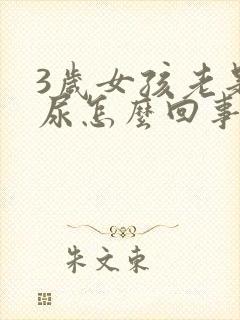 3歲女孩老是
尿怎麼回事
朱文東